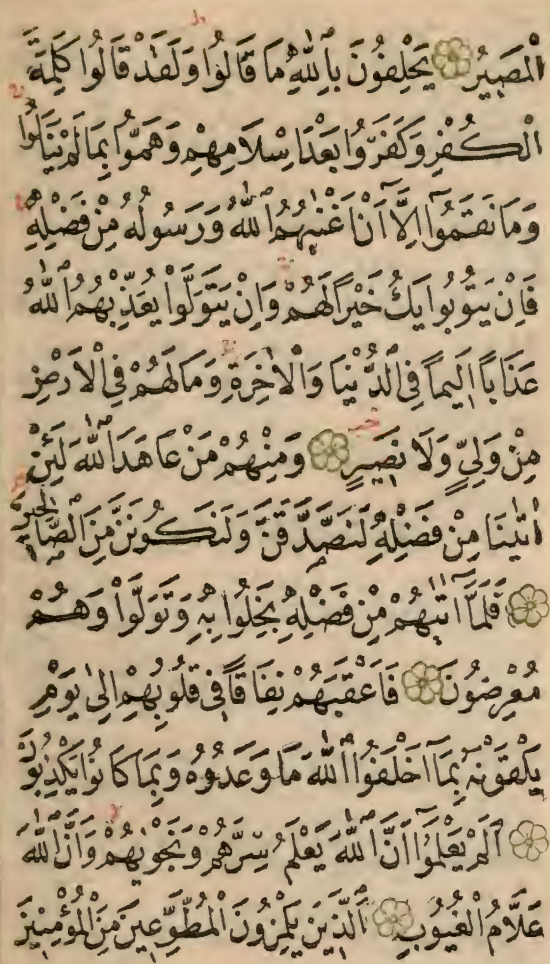 الْمَصِيرُ يَحْلِفُونَ بِاللّٰهِ مَا قَالُوا وَلَقَدْ قَالُوا كَلِمَةَ
الْكُفْرِ وَكَفَرُوا بَعْدَ اِسْلَامِهِمْ وَهَمُّوا بِمَا لَمْ يَنَالُوا
وَمَا نَقَمُوا اِلَّا اَنْ اَغْنٰيهُمُ اللّٰهُ وَرَسُولُهُ مِنْ فَضْلِهِ
فَاِنْ يَتُوبُوا يَكُ خَيْرًا لَهُمْ وَاِنْ يَتَوَلَّوْا يُعَذِّبْهُمُ اللّٰهُ
عَذَابًا اَلِيمًا فِي الدُّنْيَا وَالْاٰخِرَةِ وَمَا لَهُمْ فِي الْاَرْضِ
مِنْ وَلِيٍّ وَلَا نَصِيرٍ وَمِنْهُمْ مَنْ عَاهَدَ اللّٰهَ لَئِنْ
اٰتٰينَا مِنْ فَضْلِهِ لَنَصَّدَّقَنَّ وَلَنَكُونَنَّ مِنَ الصَّالِحِينَ
فَلَمَّا اٰتٰيهُمْ مِنْ فَضْلِهِ بَخِلُوا بِهِ وَتَوَلَّوْا وَهُمْ
مُعْرِضُونَ فَاَعْقَبَهُمْ نِفَاقًا فِي قُلُوبِهِمْ اِلٰى يَوْمِ
يَلْقَوْنَهُ بِمَا اَخْلَفُوا اللّٰهَ مَا وَعَدُوهُ وَبِمَا كَانُوا يَكْذِبُونَ
اَلَمْ يَعْلَمُوا اَنَّ اللّٰهَ يَعْلَمُ سِرَّهُمْ وَنَجْوٰيهُمْ وَاَنَّ اللّٰهَ
عَلَّامُ الْغُيُوبِ اَلَّذِينَ يَلْمِزُونَ الْمُطَّوِّعِينَ مِنَ الْمُؤْمِنِينَ